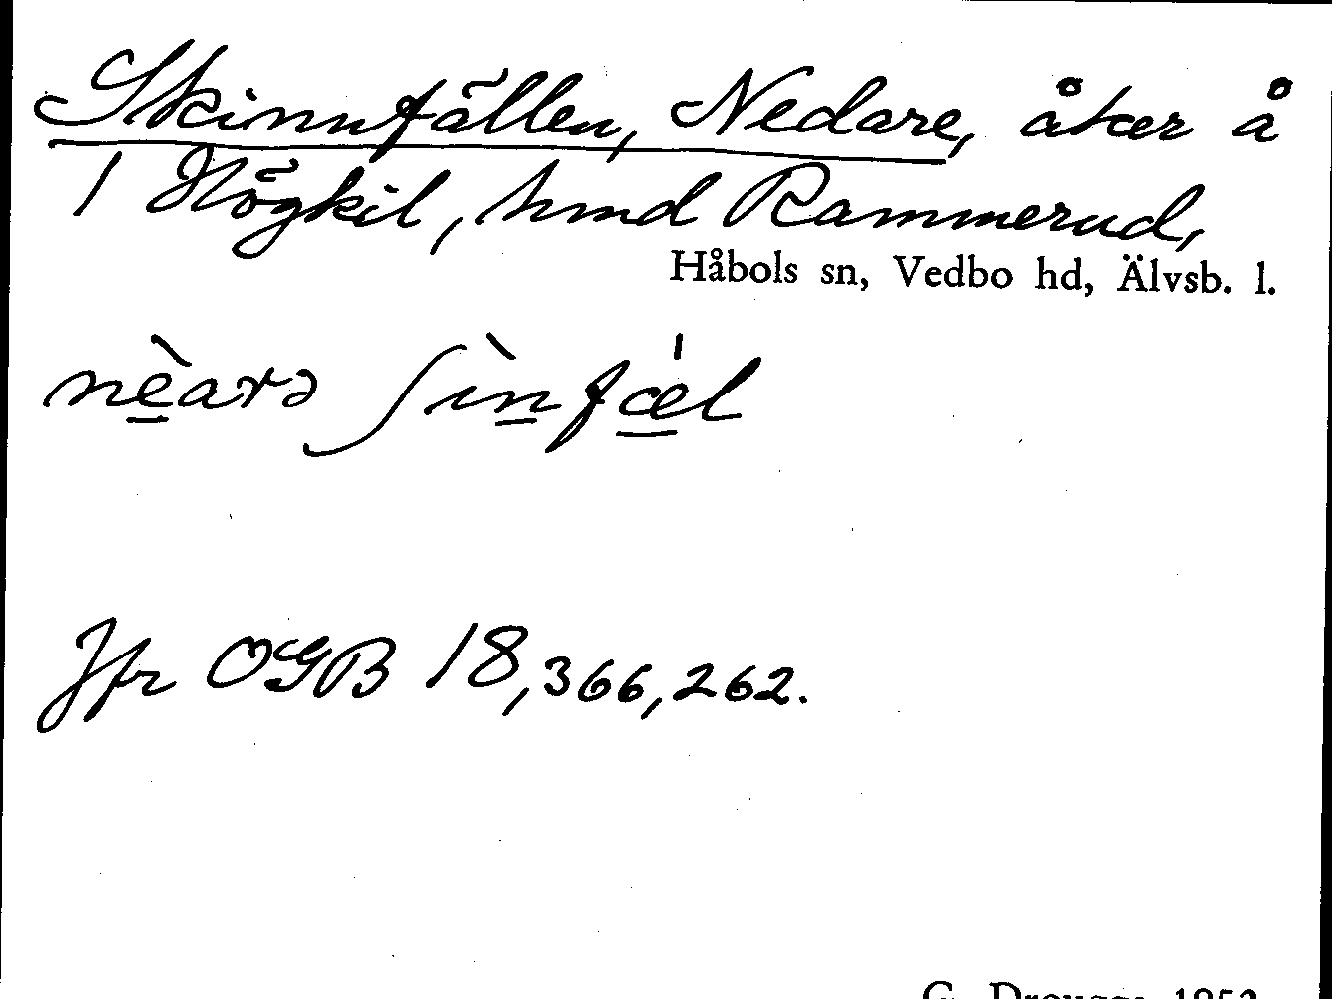 Skinnfällen, Nedare, åker å
1 Högkil, hmd Rammerud,
Håbols sn, Vedbo hd, Älvsb. l.
nèarə ʃìnfæ̀l
Jfr OGB 18,366,262.
G.